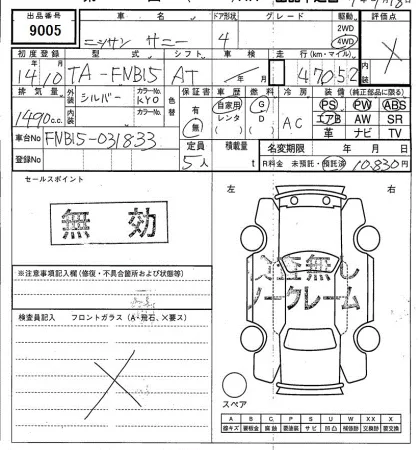 出品番号 車名 ドア形状 グレード 駆動 評価点
9005 ニッサン サニー 4 2WD 4WD ×
初度登録 型式 シフト 車検 走行(km・マイル)
14/10 TA-FNB15 AT 年 月 47052
排気量 外装 シルバー カラーNo. KYO 色替 保証書 車歴 燃料 冷房 装備(純正部品に限る)
1490cc. 内装 カラーNo. 有 無 自家用 レンタ G D AC PS PW ABS
エアB AW SR
革 ナビ TV
車台No FNB15-031833 定員 積載量 名変期限 年 月 日
登録No 5人 t R料金 未預託・預託済 10,830円
セールスポイント 左 右
無効
※注意事項記入欄(修復・不具合箇所および状態等)
検査員記入 フロントガラス(A・飛石、×要ス)
×
検証無し
ノークレーム
スペア
A B C P S U W X XX
線キズ 要板金 腐蝕 要塗装 サビ 凹凸 補修跡 交換跡 要交換